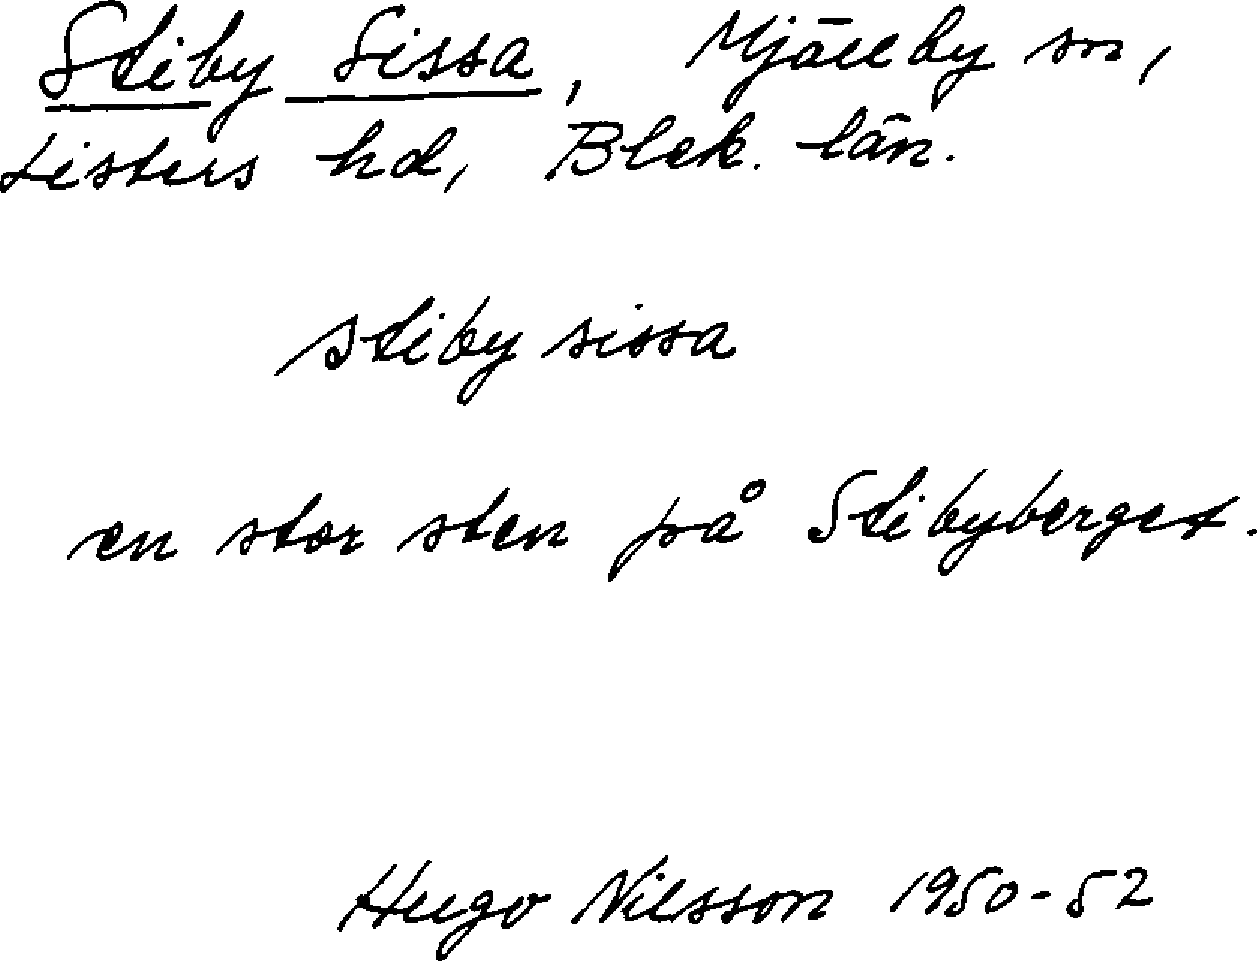 Stiby Sissa, Mjällby sn,
Listers hd, Blek. län.
stiby sissa
en stor sten på Stibyberget.
Hugo Nilsson 1950-52